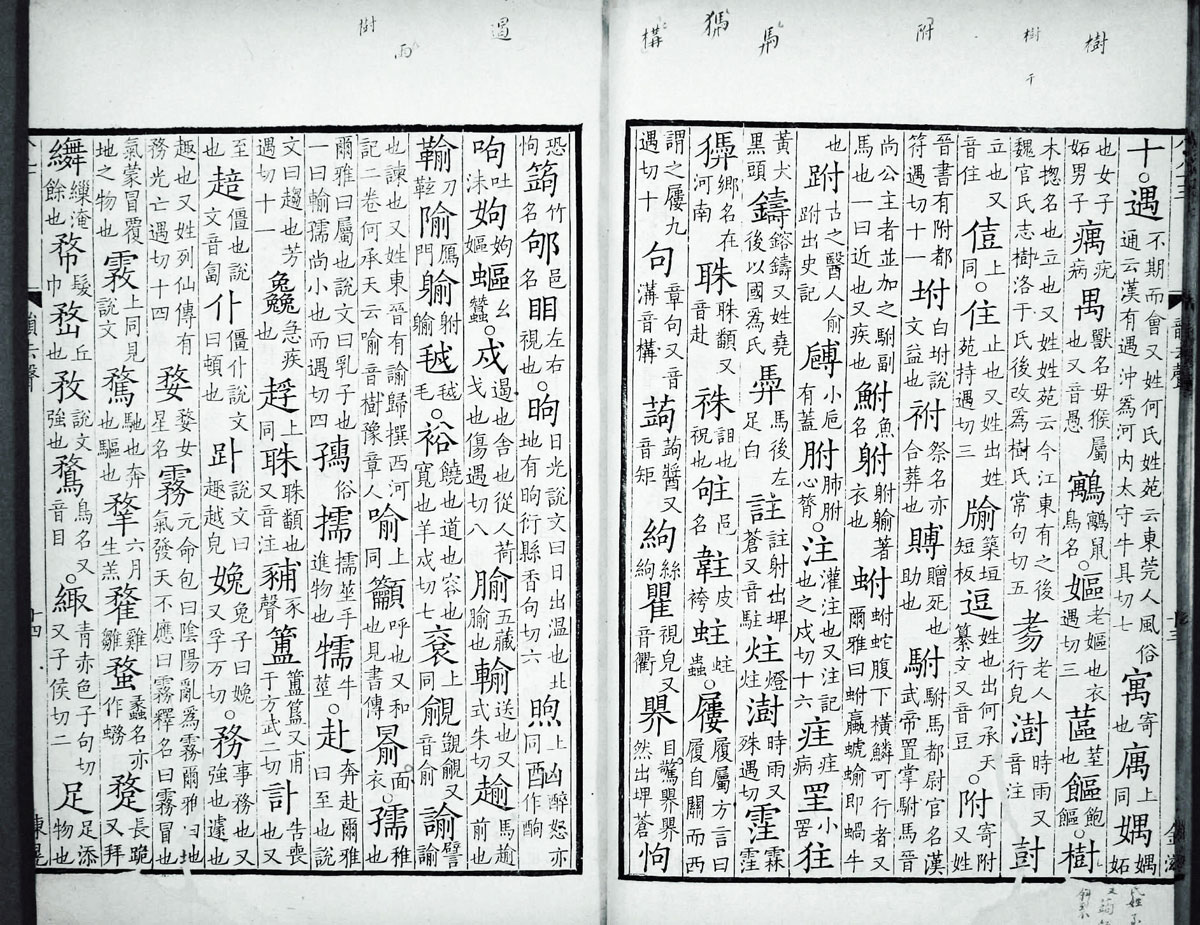 十○遇不期而會又姓何氏姓苑云東莞人風俗通云漢有遇沖為河內太守牛具切七寓寄也庽上同媀媀妬
也女子妬男子㾄疣病禺獸名毋猴屬也又音愚鸆鼠鳥名○嫗老嫗也衣遇切三蓲荎也饇飽饇○樹
木揔名也立也又姓姓苑云今江東有之後魏官氏志樹洛于氏後改為樹氏常句切五老人行皃澍時雨又音注尌
立也又音住侸上同○住止也又姓出姓苑持遇切三牏築垣短板逗姓也出何承天纂文又音豆○附寄附又姓
晉書有附都符遇切十一坿白坿說文益也祔祭名亦合葬也賻贈死也助也駙駙馬都尉官名漢武帝置掌駙馬晉
尚公主者並加之駙副馬也一曰近也又疾也鮒魚名著衣也蚹蚹蛇腹下橫鱗可行者又爾雅曰蚹蠃螔蝓即蝸牛
也跗古之醫人俞跗出史記小巵有蓋胕肺胕心膂○注灌注也又注記也之戍切十六疰疰病罜小罟㹥
黃犬黑頭鑄鎔鑄又姓堯後以國為氏馵馬後左足白註註射出埤蒼又音駐炷燈炷澍時雨又殊遇切霔霖霔
鄉名在河南顙又音赴祩詛也祝也邑名皮袴蛀蛀蟲○屨履屬方言曰履自關而西
謂之屨九遇切十句章句又音溝音構蒟蒟醬又音矩絇絲絇瞿視皃又音衢目驚然出埤蒼怐
恐怐竹名邑名䀠左右視也○昫日光說文曰日出溫也北地有昫衍縣香句切六煦上同酗凶醉怒亦作酌
呴吐沫姁姁嫗幺蠶○戍遏也舍也從人荷戈也傷遇切八腧五藏腧也輸送也又式朱切馬前也
隃鴈門毛○裕饒也道也容也寬也羊戍切七上同覦覬覦又音俞諭譬諭
也諫也又姓東晉有諭歸撰西河記二卷何承天云喻音樹豫章人喻上同籲呼也又和也見書傳面衣○孺稚
也爾雅曰屬也說文曰乳子也一曰輸孺尚小也而遇切四俗擩擩莁手進物也牛莖○赴奔赴爾雅曰至也說
文曰趨也芳遇切十一急疾也上同顙也又音注豧豕聲簠簠簋又甫于方武二切訃告喪也又
至也僵也說文音匐仆僵仆說文曰頓也說文曰趣越皃娩兔子曰娩又孚万切○務事務也又強也遽也
趣也又姓列仙傳有務光亡遇切十四婺婺女星名霧元命包曰陰陽亂為霧爾雅曰地氣發天不應曰霧釋名曰霧冒也
氣蒙冒覆地之物也霚上同見說文騖馳也奔也驅也六月生羔雞雛蝥蟊名亦作蝥長跪又拜
繀淹餘也髮巾丘也敄說文強也鶩鳥名又音目○緅青赤色子句切又子侯切二足足添物也